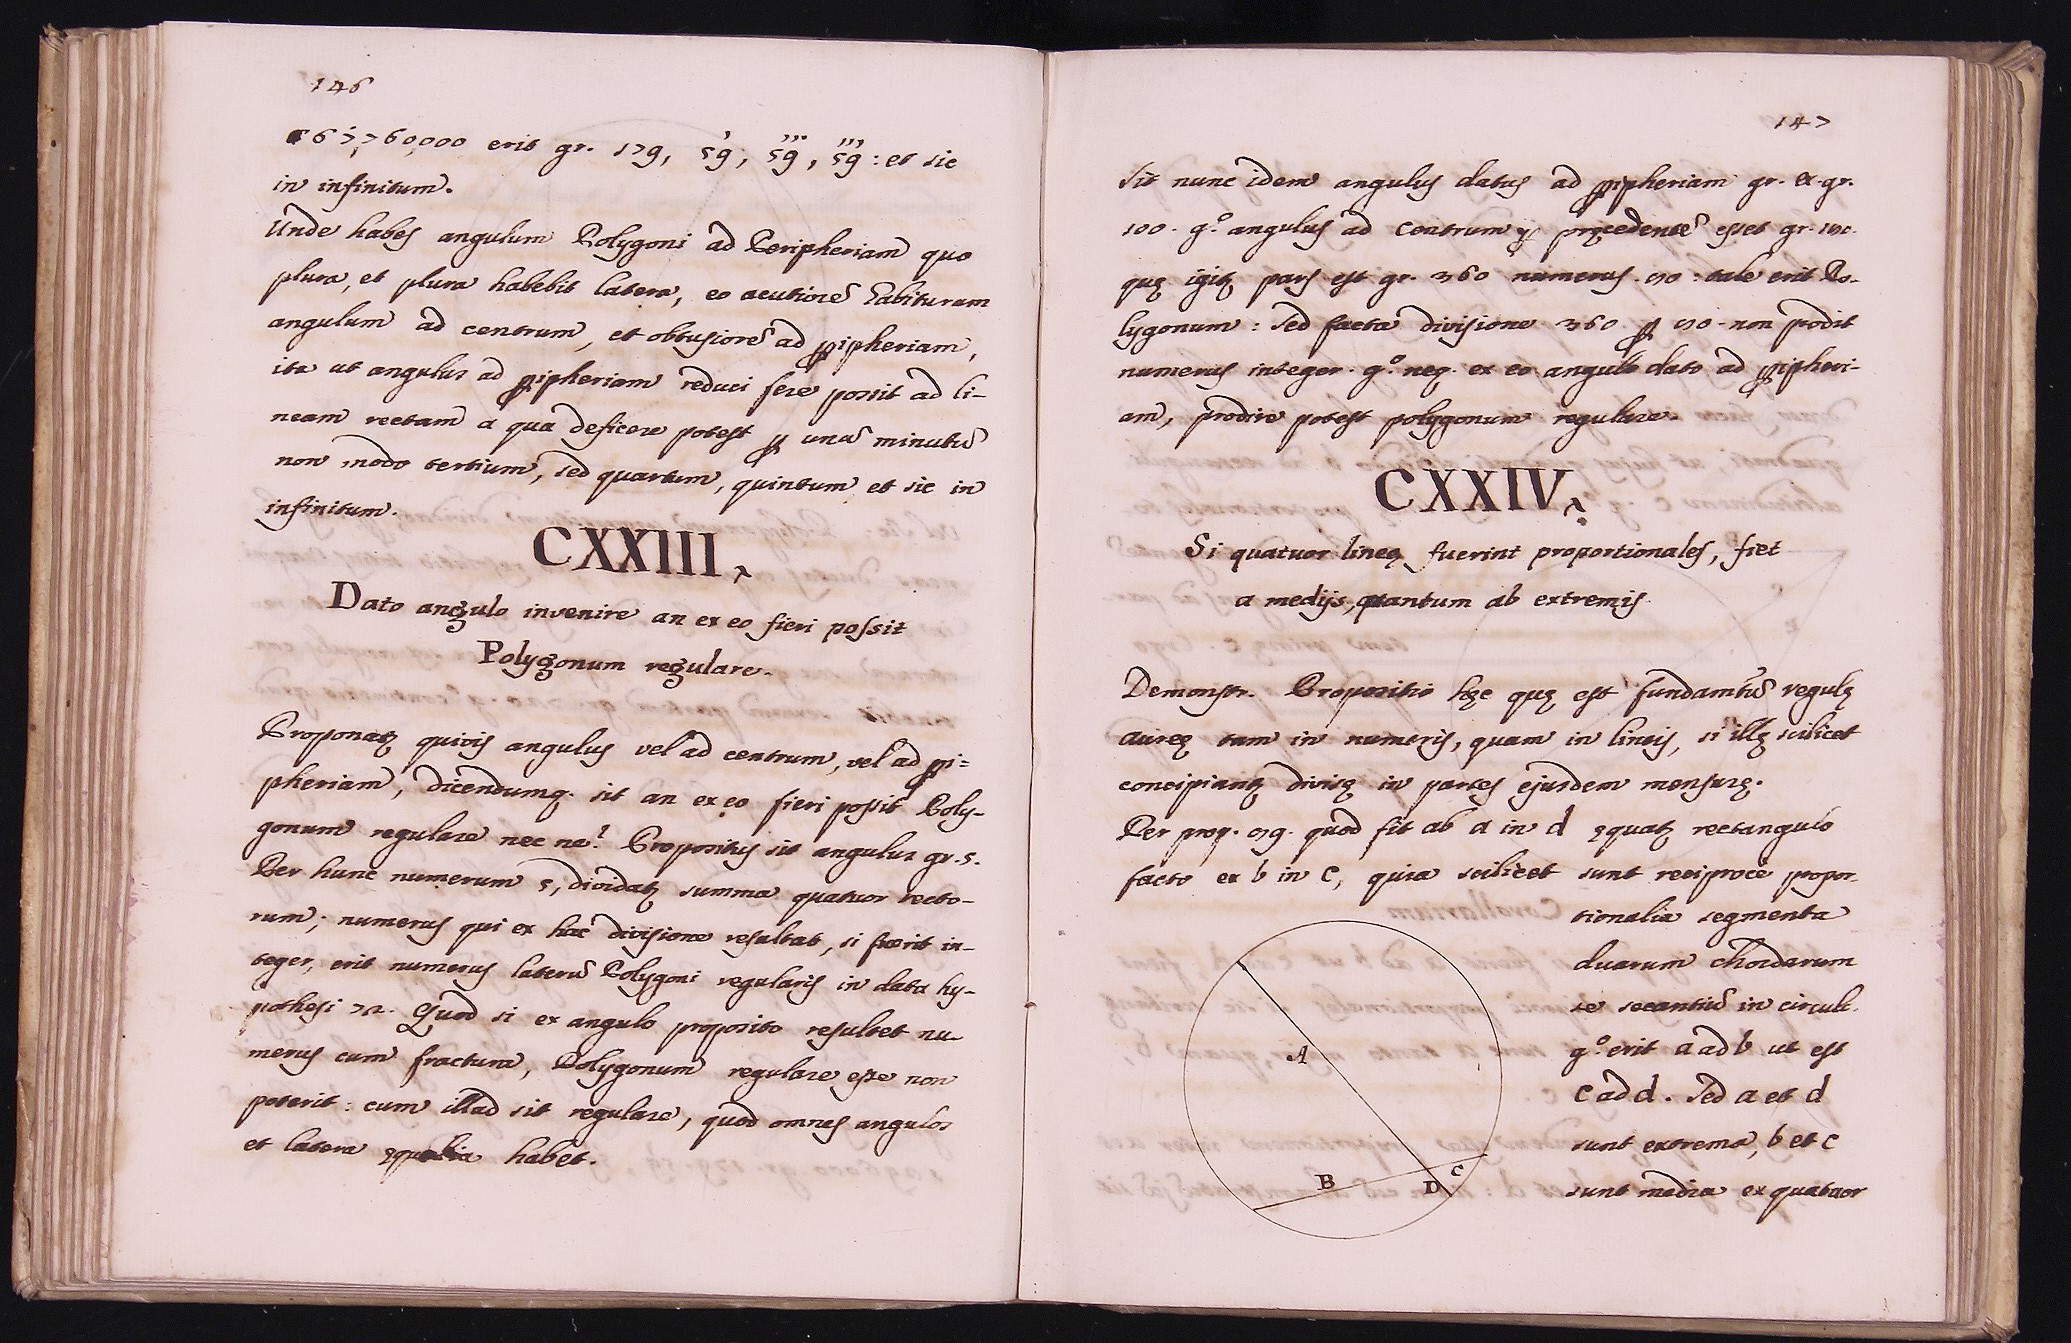 146
gr. 179, 59, 59, 59: et sic
in infinitum.
Unde habes angulum Polygoni ad Peripheriam quo
plura, et plura habebit latera, eo acutiorē habiturum
angulum ad centrum, et obtusiorē ad ꝑipheriam,
ita ut angulus ad ꝑipheriam reduci fere possit ad li-
neam rectam a qua deficere potest ꝑ unū minutū
non modo tertium, sed quartum, quintum et sic in
infinitum.
CXXIII.
Dato angulo invenire an ex eo fieri possit
Polygonum regulare.
Proponatꝫ quivis angulus vel ad centrum, vel ad ꝑi-
pheriam, dicendumq. sit an ex eo fieri possit Poly-
gonum regulare nec ne? Propositus sit angulus gr. 5.
Per hunc numerum 5, dividatꝫ summa quatuor recto-
rum; numerus qui ex hac divisione resultat, si fuerit in-
teger, erit numerus laterū Polygoni regularis in data hy-
pothesi 72. Quod si ex angulo proposito resultet nu-
merus cum fractura, Polygonum regulare esse non
poterit: cum illud sit regulare, quod omnes angulos
et latera ęqualia habet.
147
Sit nunc idem angulus datus ad ꝑipheriam gr. ex. gr.
100. g.º angulus ad centrum præcedentē esset gr.
quę igitꝫ pars est gr. 360 numerus 80: tale erit Po-
lygonum: sed facta divisione 360 ꝑ 80 non prodit
numerus integer. g.º neq. ex eo angulo dato ad ꝑipheri-
am, prodire potest polygonum regulare.
CXXIV.
Si quatuor lineę fuerint proportionales, fiet
a medijs, quantum ab extremis
Demonstr. Propositio hęc quę est fundamtū regulę
aureę tam in numeris, quam in lineis, si illę scilicet
concipiantꝫ divisę in partes ejusdem mensurę.
Per prop. 89. quod fit ab a in d ęquatꝫ rectangulo
facto ex b in c, quia scilicet sunt reciprocè propor-
tionalia segmenta
duarum chordarum
se secantiū in circul.
g.º erit a ad b ut est
c ad d. Sed a et d
sunt extrema, b et c
sunt media ex quatuor
A
B
C
D